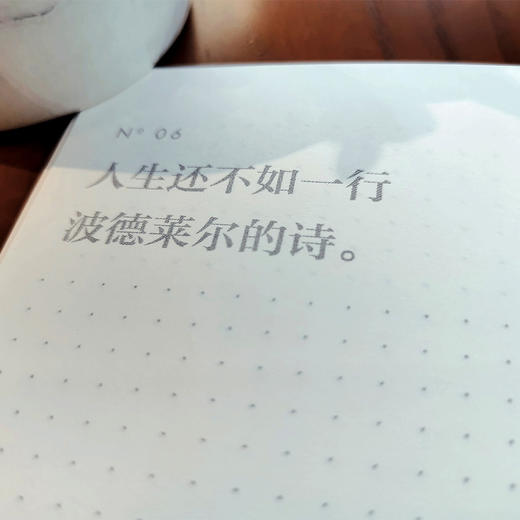 N° 06
人生还不如一行
波德莱尔的诗。